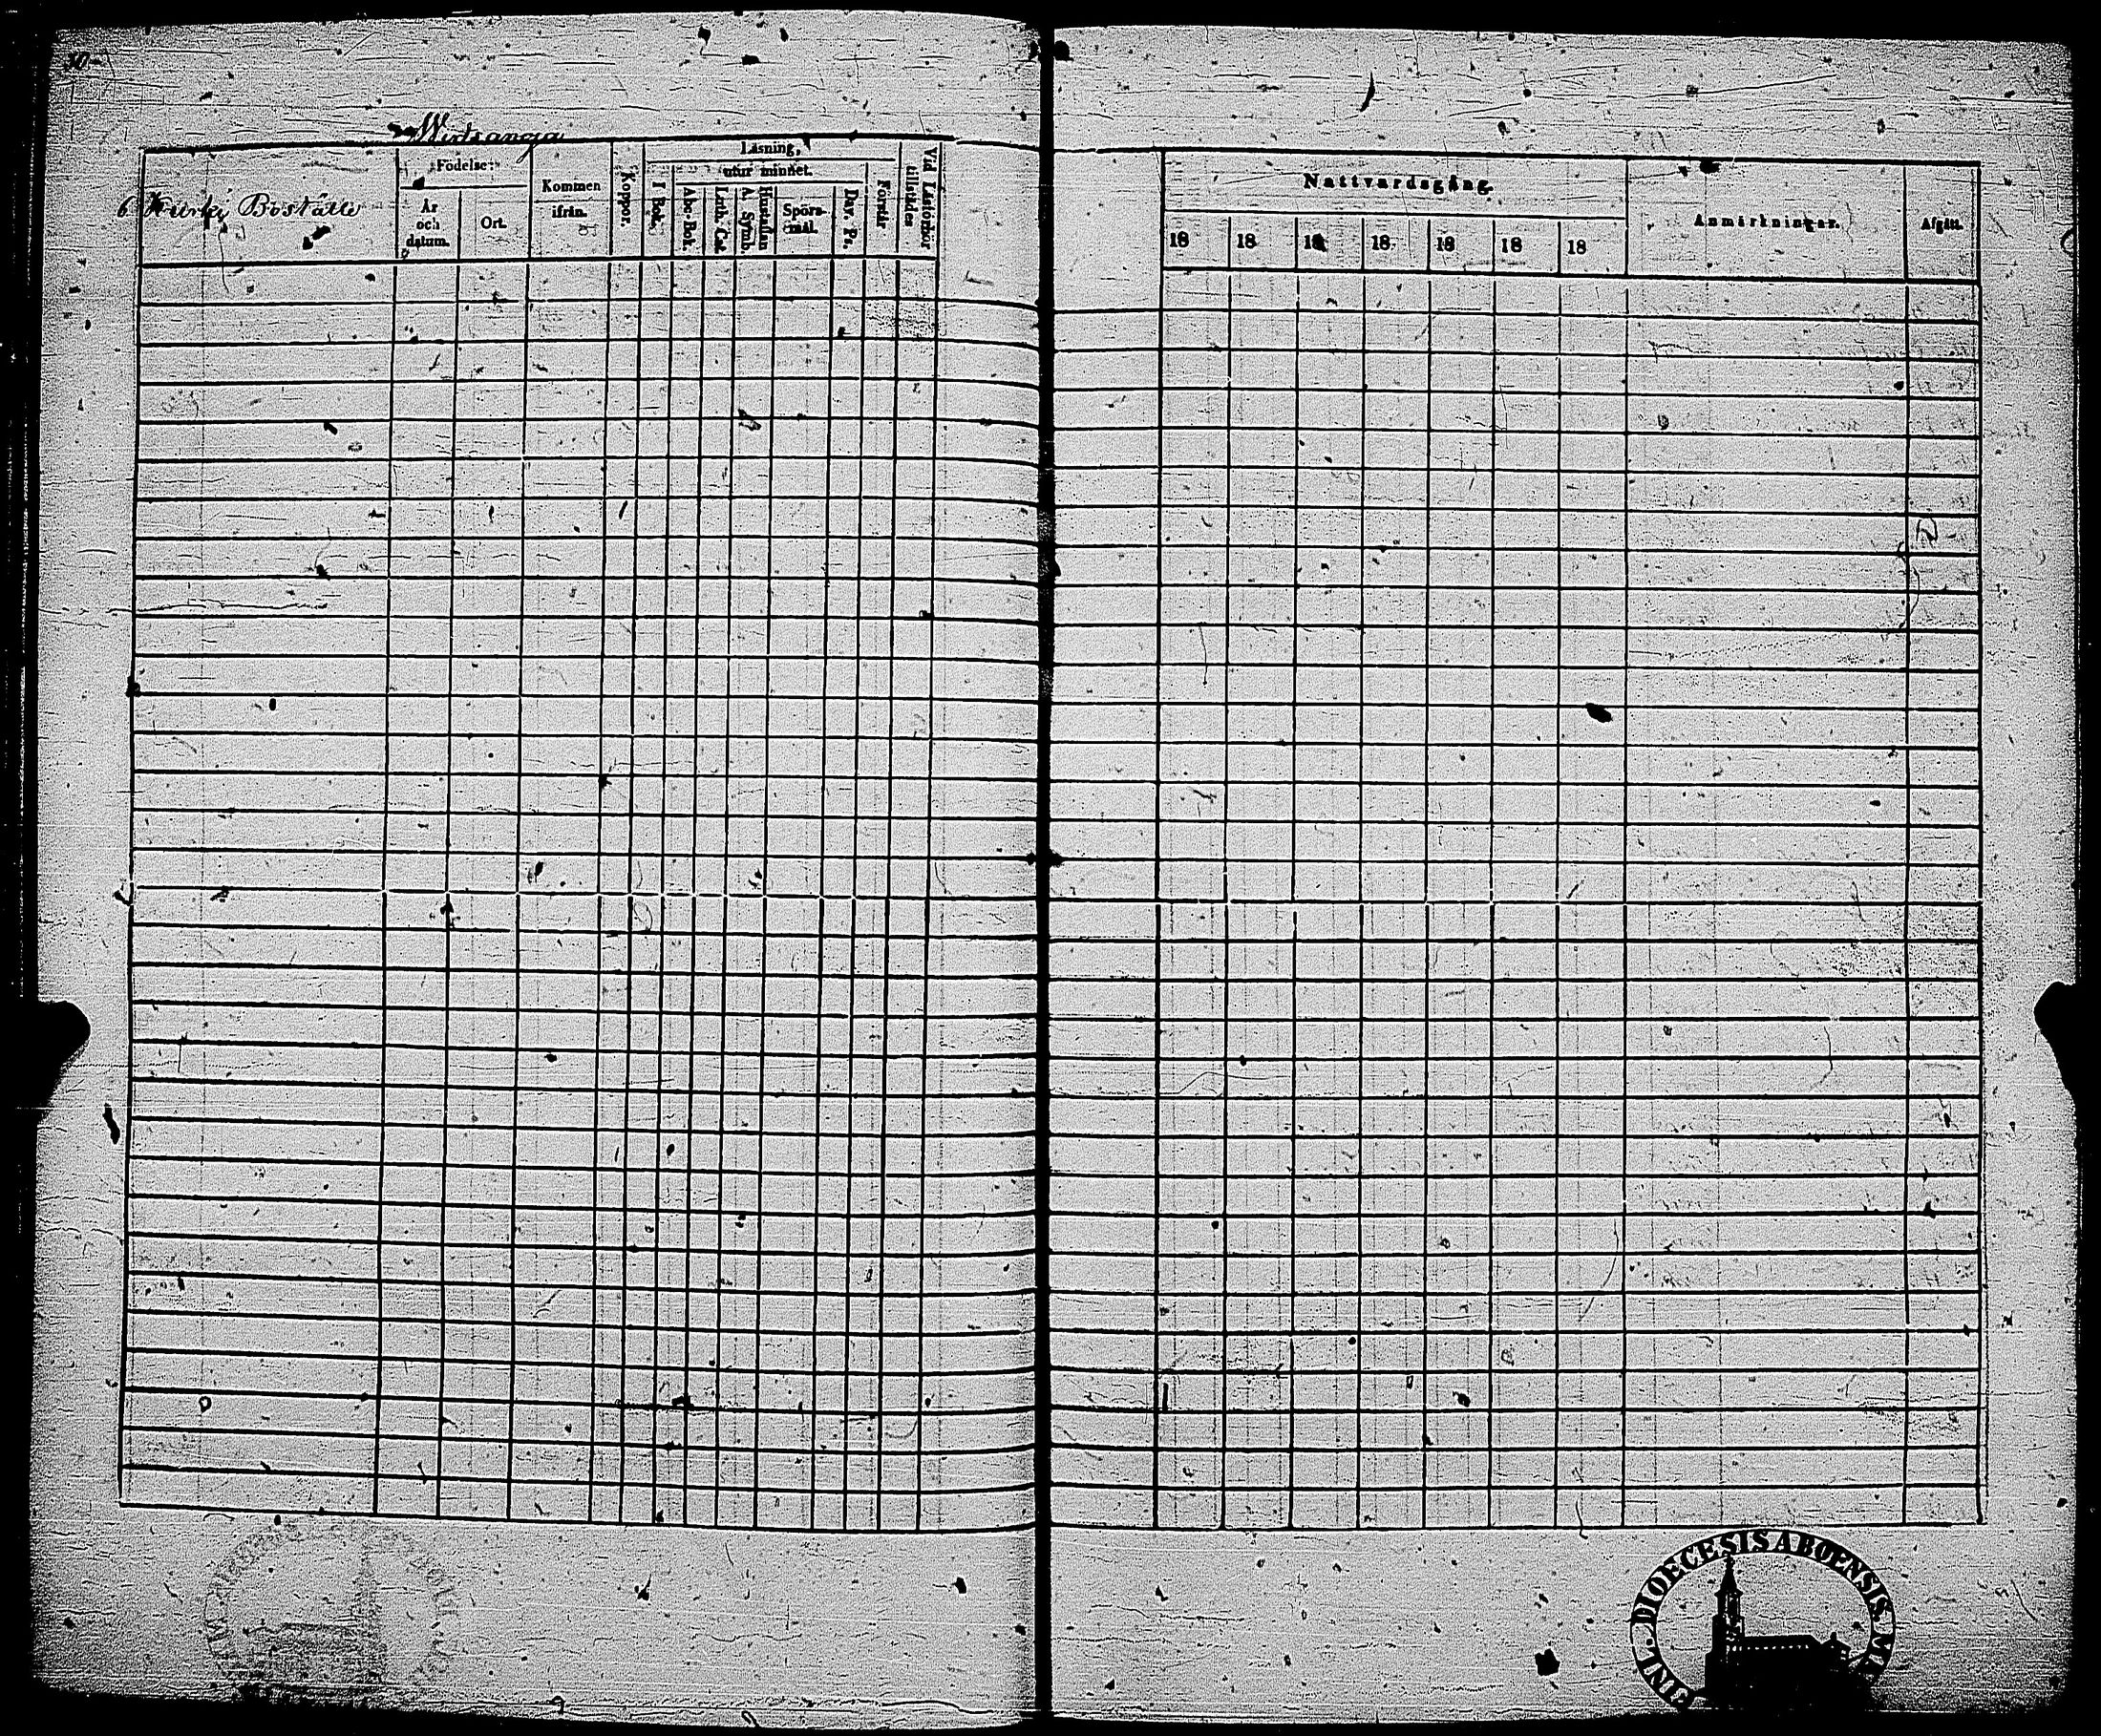 Widsanoja
6 Kurki Boställe
Födelse
År och datum.
Ort.
Kommen ifrån.
Koppor.
Läsning,
utur minnet.
I Bok.
Abc-Bok.
Luth. Cat.
Hustaflan A. Symb.
Spörs-mål.
Dav. Ps.
Förstår
Vid Läsförhör tillstädes
Nattvardsgång.
18 18 18 18 18 18 18
Anmärkningar.
Afgått.
FINL. DIOECESIS ABOENSIS. M.